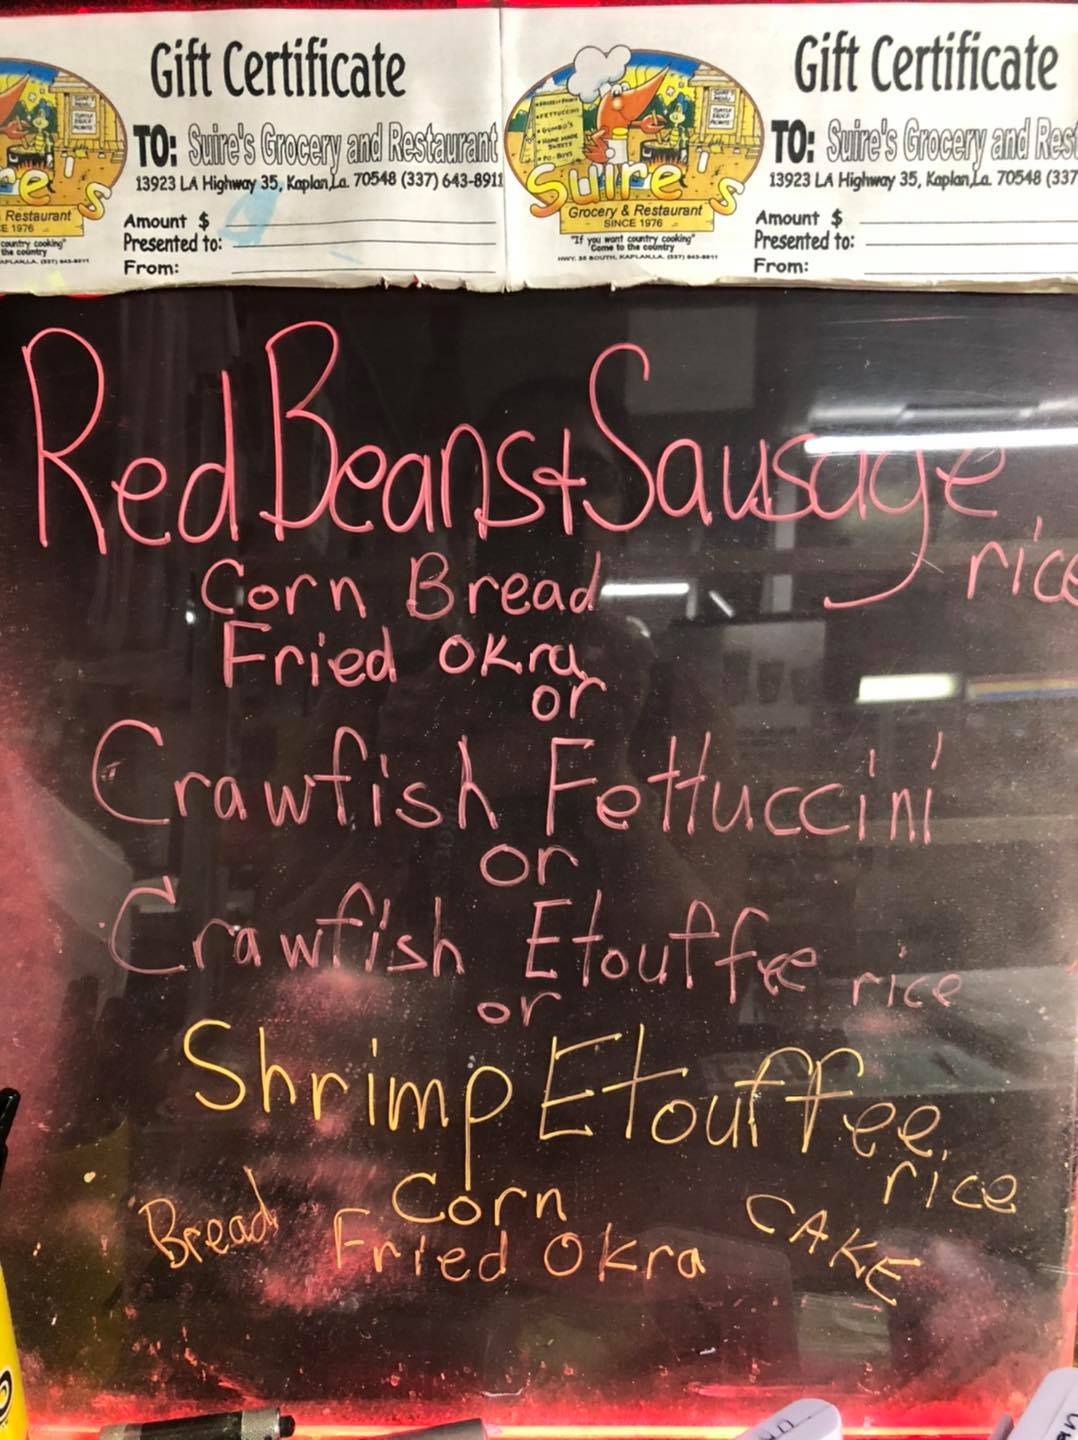 Gift Certificate
TO: Suire's Grocery and Restaurant
13923 LA Highway 35, Kaplan,La. 70548 (337) 643-8911
Amount $
Presented to:
From:
re's
Restaurant
E 1976
country cooking"
the country
Suire's
Grocery & Restaurant
SINCE 1976
"If you want country cooking"
"Come to the country
HWY. 35 SOUTH, KAPLAN,LA. (337) 643-8911
Gift Certificate
TO: Suire's Grocery and Rest
13923 LA Highway 35, Kaplan,La. 70548 (337
Amount $
Presented to:
From:
Red Beans + Sausage, rice
Corn Bread
Fried Okra
or
Crawfish Fettuccini
or
Crawfish Etouffee rice
or
Shrimp Etouffee, rice
Bread Corn CAKE
Fried Okra